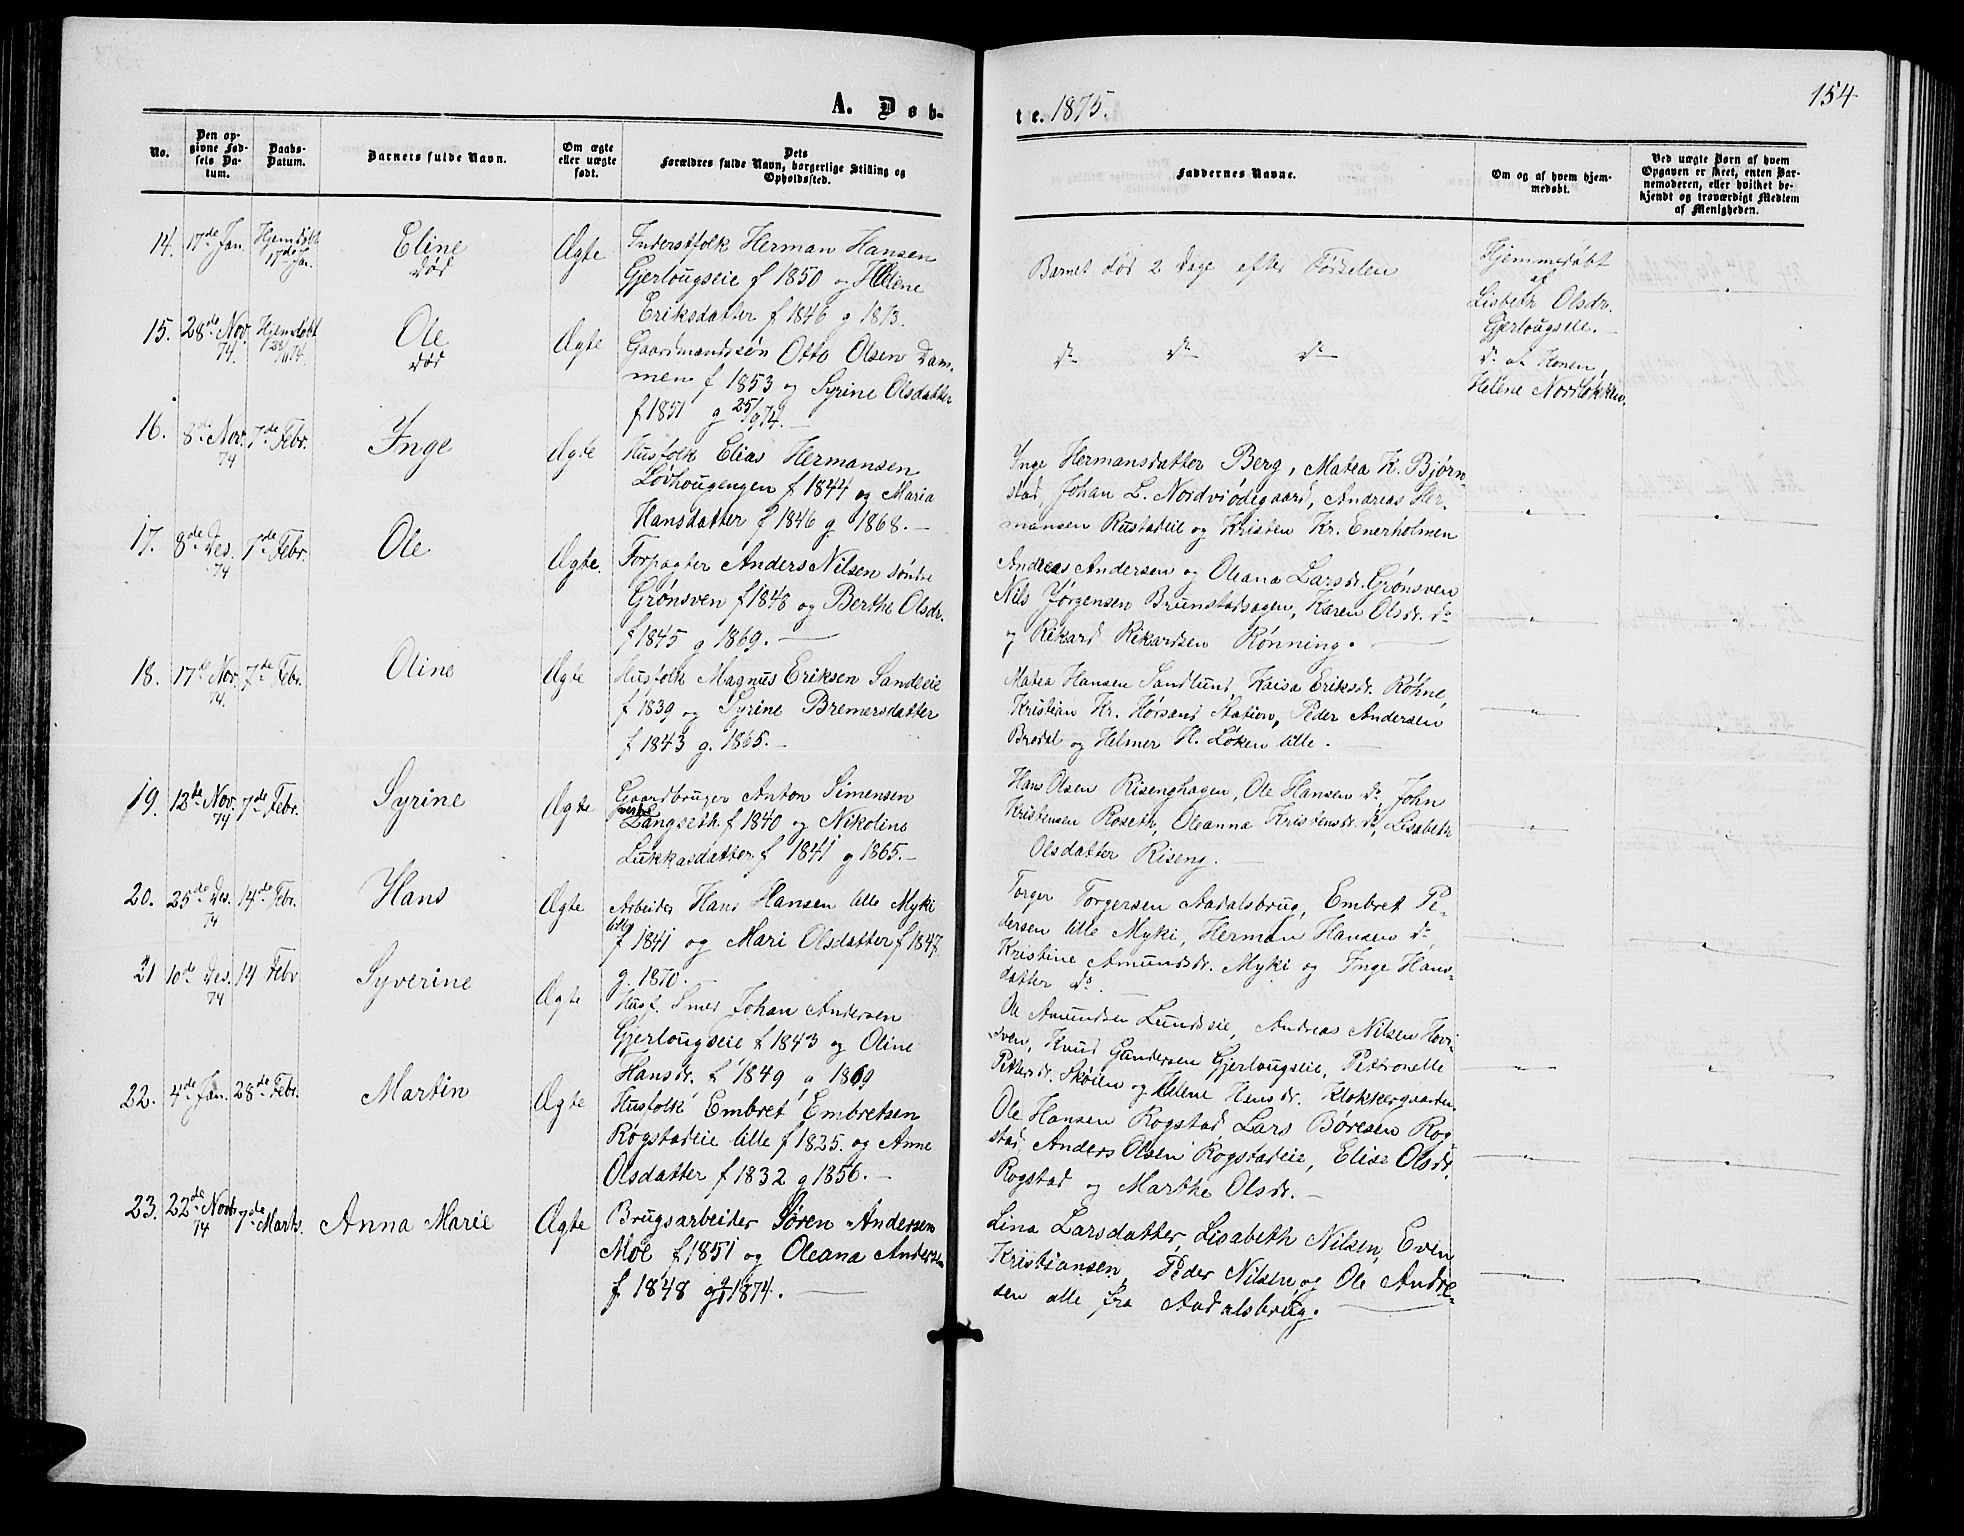 154
A. Døb-
te. 1875.
No.
Den op-
givne Fød-
sels Da-
tum.
Daabs-
Datum.
Barnets fulde Navn.
Om ægte
eller uægte
født.
Dets
Forældres fulde Navn, borgerlige Stilling og
Opholdssted.
Faddernes Navne.
Om og af hvem hjem-
medøbt.
Ved uægte Børn af hvem
Opgaven er skeet, enten Bar-
nemoderen, eller hvilket be-
kjendt og troværdigt Medlem
af Menigheden.
14. 17de Jan Hjemdøbt
17de Jan.
Eline
død
Ægte
Inderstfolk Herman Hansen
Gjerlougseie f 1850 og Helene
Eriksdatter f 1846 g 1873.
Barnet død 2 Dage efter Fødselen
Hjemmedøbt
af
Lisbeth Olsdr.
Gjerlougseie.
15. 28de Nov.
74.
Hjemdøbt
28/11 74.
Ole
død
Ægte
Gaardmandssøn Otto Olsen Dam-
men f 1853 og Syrine Olsdatter
f 1851 g 25/9 74.
do do do
do af Konen
Helene Nordløkken.
16. 8de Nov.
74
7de Febr.
Inge
Ægte
Husfolk Elias Hermansen
Løvhougengen f 1844 og Maria
Hansdatter f 1846 g 1868.
Inge Hermansdatter Berg, Matea K. Bjørn-
stad, Johan L. Nordviødegaard, Andreas Her-
mansen Rustadeie og Kristen Kr. Enerholmen
17. 8de Des.
74
7de Febr.
Ole
Ægte.
Forpagter Anders Nilsen søndre
Grønsven f 1848 og Berthe Olsdr.
f 1845 g 1869.
Andreas Andersen og Oleana Larsdr. Grønsven
Nils Jørgensen Brunstadsagen, Karen Olsdr. do
og Rikard Rikardsen Rønning.
18. 17de Nov.
74.
7de Febr.
Oline
Ægte
Husfolk Magnus Eriksen Sandeie
f 1839 og Syrine Bremersdatter
f 1843 g. 1865.
Matea Hansen Sandlund, Kaisa Eriksdr. Røhne,
Kristian Kr. Hørsand Station, Peder Andersen
Brodal og Helmer H. Løken lille.
19. 12de Nov.
74
7de Febr.
Syrine
Ægte
Gaardbruger Anton Simensen
Langseth f 1840 og Nikoline
Lukkasdatter f 1841 g 1865.
Hans Olsen Risenghagen, Ole Hansen do, John
Kristensen Roseth, Oleanna Kristensdr. do, Lisabeth
Olsdatter Riseng.
20. 25de Des.
74
14de Febr.
Hans
Ægte
Arbeider Hans Hansen lille Myki
f 1841 og Mari Olsdatter f 1847.
g. 1870.
Torger Torgersen Aadalsbrug, Embret Pe-
dersen lille Myki, Herman Hansen do,
Kristine Amundsdr. Myki og Inge Hans-
datter do.
21 10de Des.
74
14 Febr
Syverine
Ægte
Husf. Smed Johan Andersen
Gjerlougseie f 1843 og Oline
Hansdr. f 1849 g 1869
Ole Amundsen Lundseie, Andreas Nilsen Hovi-
sven, Knud Gundersen Gjerlougseie, Petronelle
Pettersdr. Skøien og Helene Hansdr. Klokkergaarden.
22. 4de Jan. 28de Febr.
Martin
Ægte
Husfolk Embret Embretsen
Rogstadeie lille f 1835. og Anne
Olsdatter f 1832 g 1856.
Ole Hansen Rogstad Lars Børesen Rog-
stad, Anders Olsen Rogstadeie, Elise Olsdr.
Rogstad og Marthe Olsdr.
23. 22de Novb.
74
7de Marts.
Anna Marie
Ægte
Brugsarbeider Søren Andersen
Moe f 1851 og Oleana Andersen
f 1848 g 1874.
Lina Larsdatter, Lisabeth Nilsen, Even
Kristiansen, Peder Nilsen og Ole Andre-
sen alle fra Aadalsbrug.